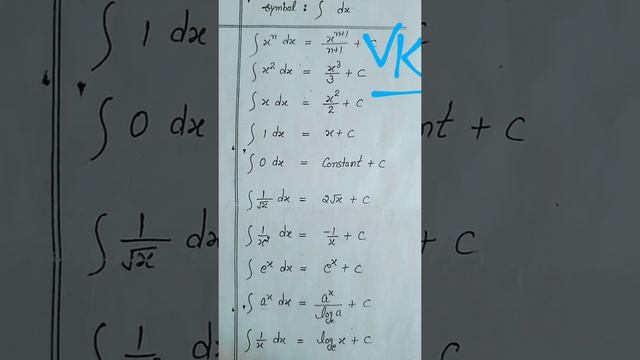 symbol : ∫ dx
∫ xⁿ dx = xⁿ⁺¹/n+1 + c
VK
∫ x² dx = x³/3 + c
∫ x dx = x²/2 + c
∫ 1 dx = x + c
∫ 0 dx = Constant + c
∫ 1/√x dx = 2√x + c
∫ 1/x² dx = -1/x + c
∫ eˣ dx = eˣ + c
∫ aˣ dx = aˣ/logₑa + c
∫ 1/x dx = logₑx + c